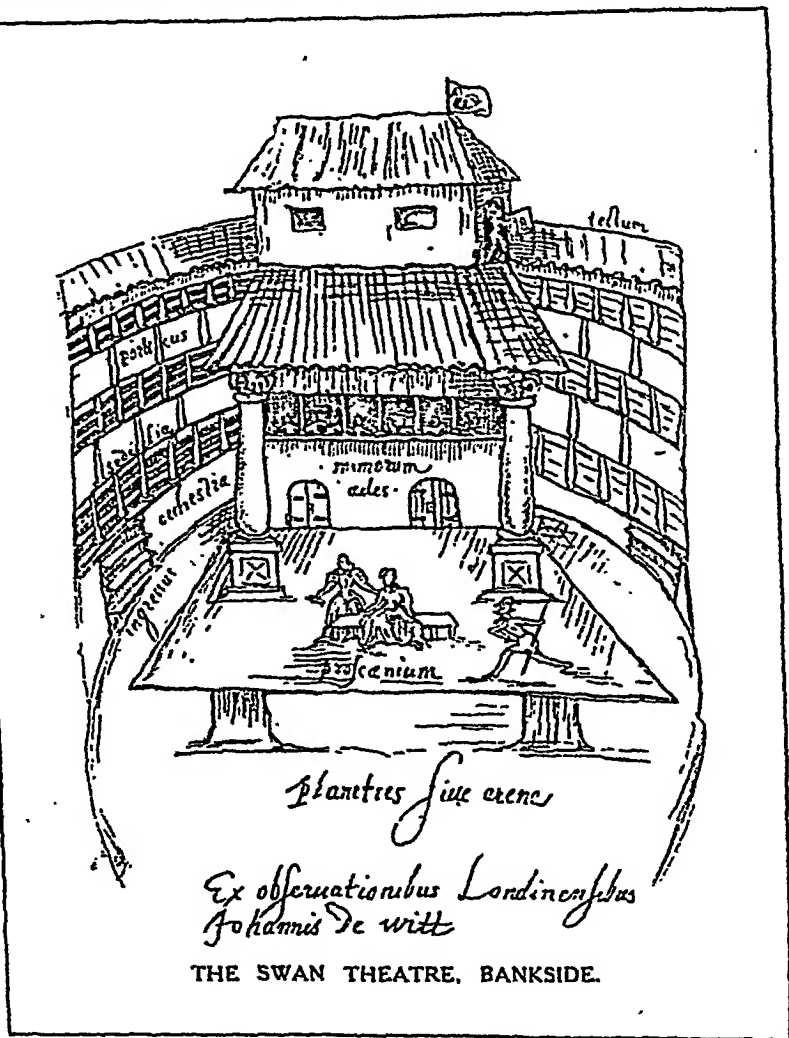 tectum
porticus
sedilia
orchestra
mimorum
ædes.
ingressus
proscænium
planities sive arena
Ex observationibus Londinensibus
Johannis De witt
THE SWAN THEATRE, BANKSIDE.